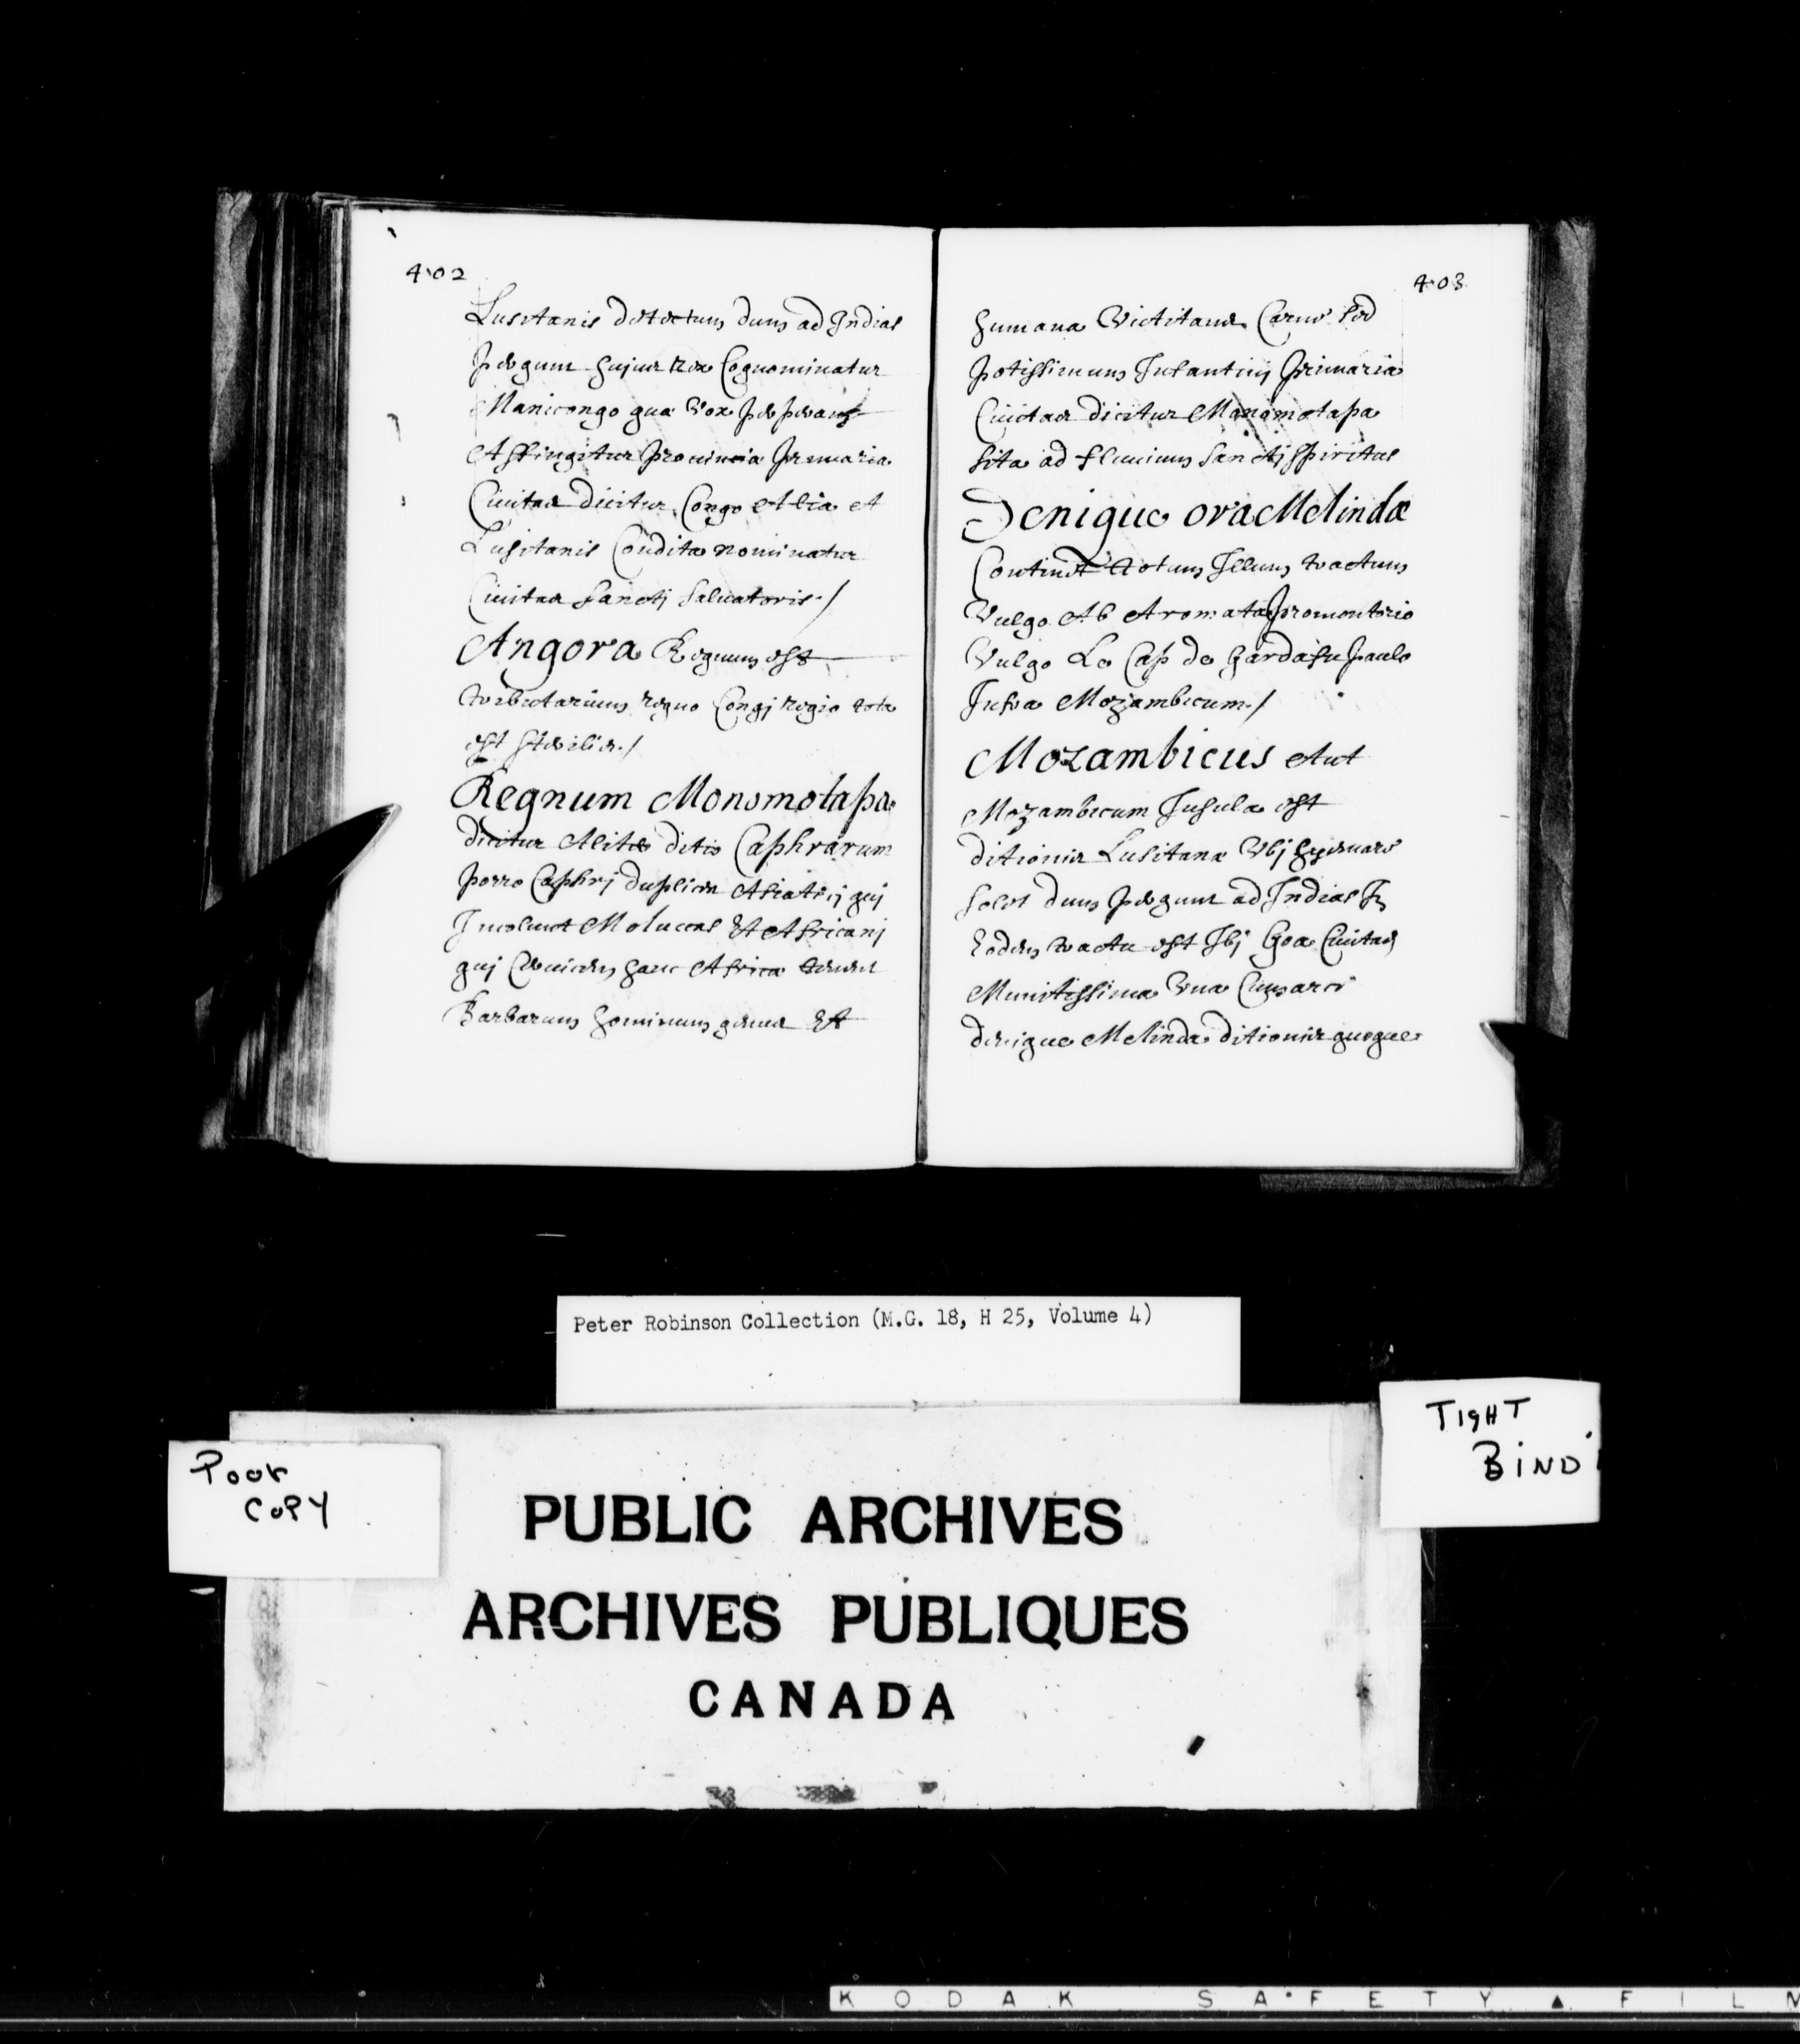 402
Lusitanis detectum dum ad Indias
pergunt hujus Rex Cognominatur
Manicongo qua vox perperam
Affingitur Provincia Primaria
Civitas dicitur Congo Alia A
Lusitanis Condita nominatur
Civitas Sanctj Salvatoris./
Angora Regnum est
tributarium regno Congj regio tota
est sterilis./
Regnum Monomotapa
dicitur Alite ditio Caphrarum
porro Caphrj duplices Asiaticj quj
Incolunt Moluccas Et Africanj
quj hanc Africa tenent
Barbarum hominum genus Et
403
humana Victitans Carne sed
potissimum Infantium Primaria
Civitas dicitur Manomotapa
sita ad fluvium Sanctj Spiritus
Denique ora Melindæ
Continet totum Illum tractum
Vulgo Ab Aromata Promontorio
Vulgo Le Cap de Gardafu paulo
Infra Mozambicum./
Mozambicus Aut
Mozambicum Insula est
ditionis Lusitanæ Vbj hyernare
solet dum pergunt ad Indias In
Eodem tractu est Ibj Goa Civitas
Munitissima Vna Cum arce
denique Melinda ditionis quoque
Peter Robinson Collection (M.G. 18, H 25, Volume 4)
TIGHT
BIND
Poor
COPY
PUBLIC ARCHIVES
ARCHIVES PUBLIQUES
CANADA
KODAK SAFETY ▲ FILM